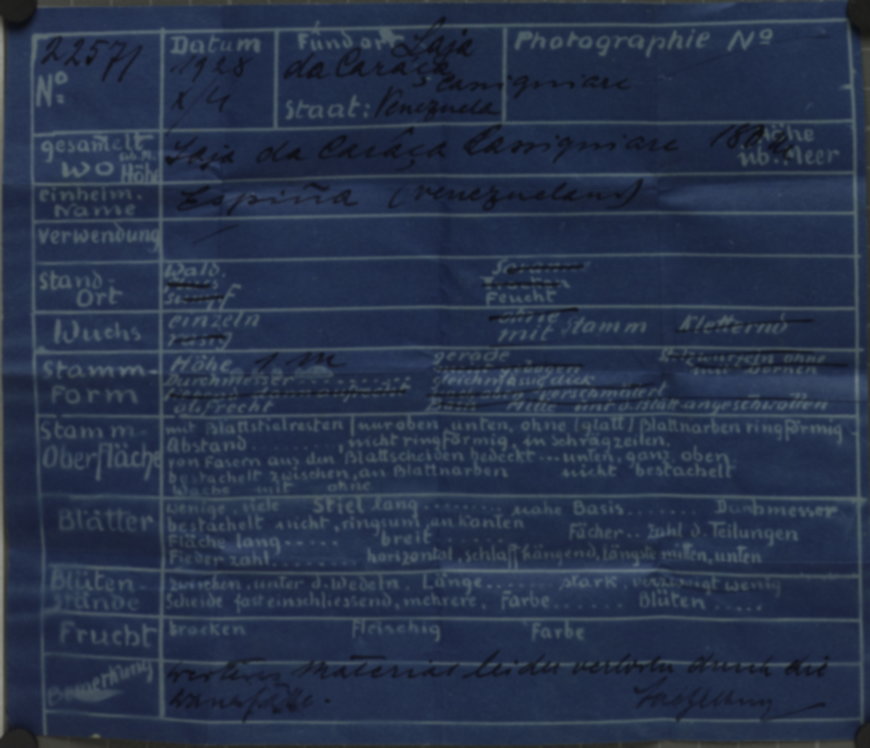 22571
Nº:
Datum
1928
Fundort Laja
da Caráca
Cassiquiare
Staat: Venezuela
Photographie Nº
gesamelt
wo üb. M. Höhe
Laja da Caráca Cassiquiare 180 Höhe
üb. Meer
einheim.
Name
Espiña (Venezuelans)
Verwendung
Stand-
Ort
Wald.
Sumpf
Feucht
Wuchs
einzeln
ohne
mit Stamm Kletternd
Stamm-
Form
Höhe 1 m gerade Stelzwurzeln ohne
mit Dornen
Durchmesser
gleichmässig dick
verschmälert
aufrecht Mitte unt. d. Blatt angeschwollen
Stamm-
Oberfläche
mit Blattstielresten / nur oben, unten, ohne / glatt / Blattnarben ringförmig
Abstand ........, nicht ringförmig, in Schrägzeilen.
von Fasern aus den Blattscheiden bedeckt ... unten, ganz oben
bestachelt zwischen, an Blattnarben nicht bestachelt
Wachs mit ohne
Blätter
wenige, viele Stiel lang ........ nahe Basis ....... Durchmesser
bestachelt nicht, ringsum, an Kanten
Fläche lang ..... breit ...... Fächer .. Zahl d. Teilungen
Fieder zahl ........ horizontal, schlaff hängend, längste mitten, unten
Blüten-
stände
zwischen, unter d. Wedeln. Länge ...... stark, verzweigt wenig
Scheide fast einschliessend, mehrere. Farbe ...... Blüten .....
Frucht
trocken Fleischig Farbe
Bemerkung
weiteres Material leider verloren durch die